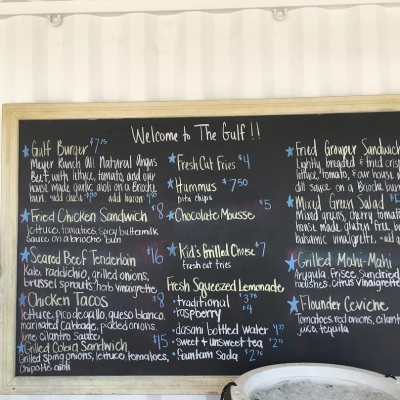 Welcome to The Gulf!!
Gulf Burger $7.75
Meyer Ranch All Natural Angus
Beef, with lettuce, tomato, and our
house made garlic aioli on a Brioche
bun. add bacon
Fried Chicken Sandwich $8
lettuce, tomatoes, spicy buttermilk
sauce on a brioche bun
Seared Beef Tenderloin $16
Kale, raddichio, grilled onions,
brussel sprouts, herb vinaigrette.
Chicken Tacos $8
lettuce, pico de gallo, queso blanco,
marinated cabbage, pickled onions,
lime cilantro sauce
Grilled Cobia Sandwich $15
Grilled spring onions, lettuce, tomatoes,
chipotle aioli
Fresh Cut Fries $4
Hummus $7.50
pita chips
Chocolate Mousse $5
Kid's Grilled Cheese $7
fresh cut fries
Fresh Squeezed Lemonade
• traditional $3.75
• raspberry $4
• dasani bottled water
• sweet + unsweet tea $2.75
• fountain soda $2.75
Fried Grouper Sandwich
Lightly breaded & fried crisp
lettuce, tomato, & our house m
dill sauce on a Brioche bun
Mixed Green Salad
Mixed greens, cherry tomato
house made gluten free
balsamic vinaigrette.
Grilled Mahi-Mahi
Arugula, frisee, Sundried
radishes, citrus vinaigrette
Flounder Ceviche
Tomatoes, red onions, cilant
juice, tequila